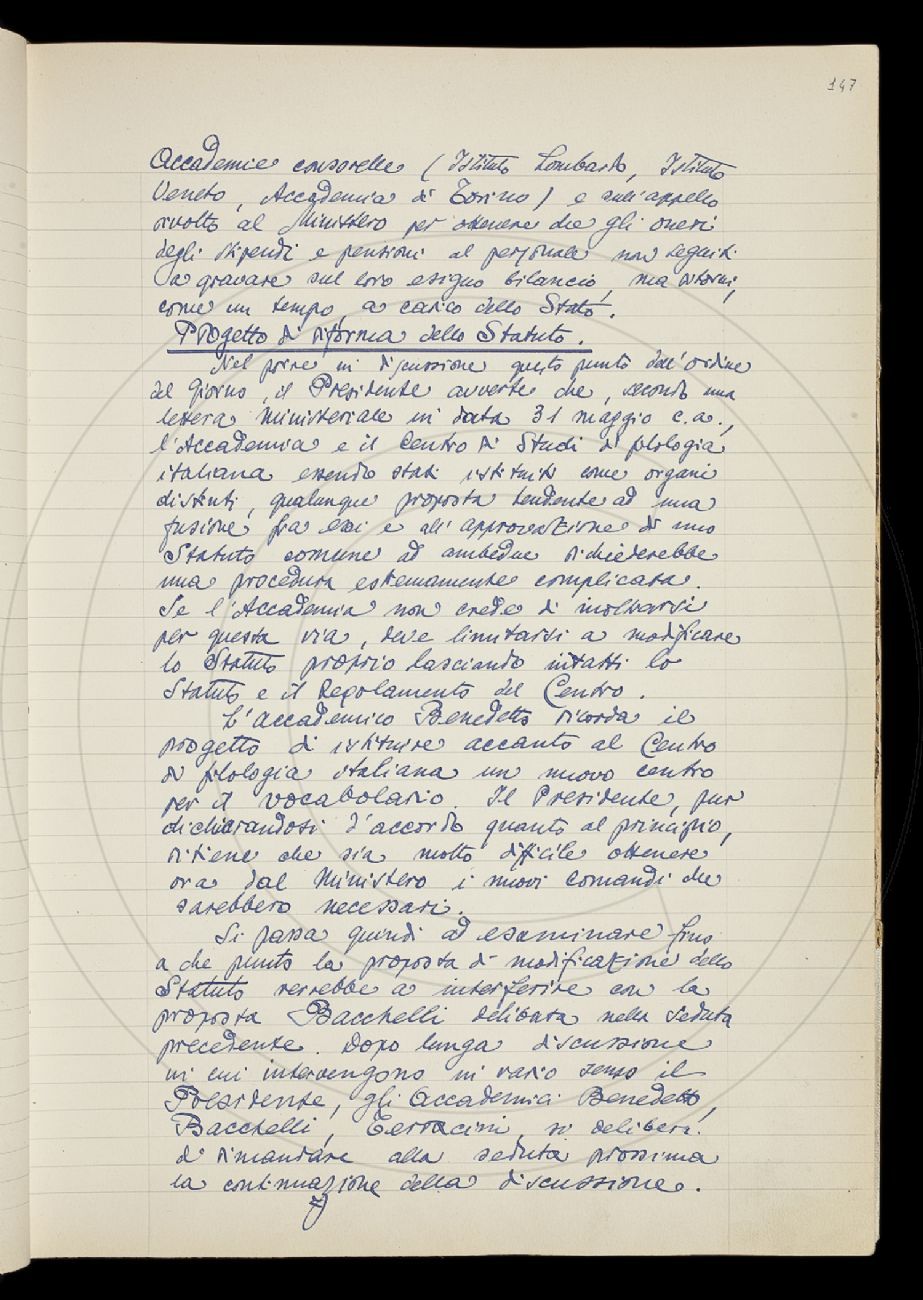 147
Accademie consorelle (Istituto Lombardo, Istituto
Veneto, Accademia di Torino) e sull'appello
rivolto al Ministero per ottenere che gli oneri
degli stipendi e pensioni al personale non seguiti
a gravare sul loro esiguo bilancio, ma ritorni,
come un tempo, a carico dello Stato.
Progetto di riforma dello Statuto.
Nel porre in discussione questo punto dell'ordine
del giorno, il Presidente avverte che, secondo una
lettera ministeriale in data 31 maggio c.a.,
l'Accademia e il Centro di Studi di filologia
italiana essendo stati istituiti come organi
distinti, qualunque proposta tendente ad una
fusione fra essi e all'approvazione di uno
Statuto comune ad ambedue richiederebbe
una procedura estremamente complicata.
Se l'Accademia non crede di inoltrarsi
per questa via, deve limitarsi a modificare
lo Statuto proprio lasciando intatti lo
Statuto e il Regolamento del Centro.
L'accademico Benedetto ricorda il
progetto di istituire accanto al Centro
di filologia italiana un nuovo centro
per il vocabolario. Il Presidente, pur
dichiarandosi d'accordo quanto al principio,
ritiene che sia molto difficile ottenere
ora dal Ministero i nuovi comandi che
sarebbero necessari.
Si passa quindi ad esaminare fino
a che punto la proposta di modificazione dello
Statuto verrebbe a interferire con la
proposta Bacchelli delibata nella seduta
precedente. Dopo lunga discussione
in cui intervengono in vario senso il
Presidente, gli Accademici Benedetto,
Bacchelli, Terracini, si delibera
di rimandare alla seduta prossima
la continuazione della discussione.